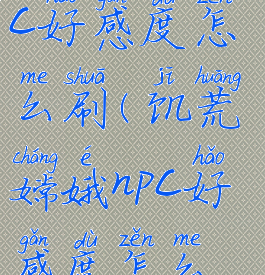 hǎo gǎn dù zěn
C好感度怎
me shuā jī huāng
么刷(饥荒
cháng é hǎo
嫦娥npc好
gǎn dù zěn me
感度怎么